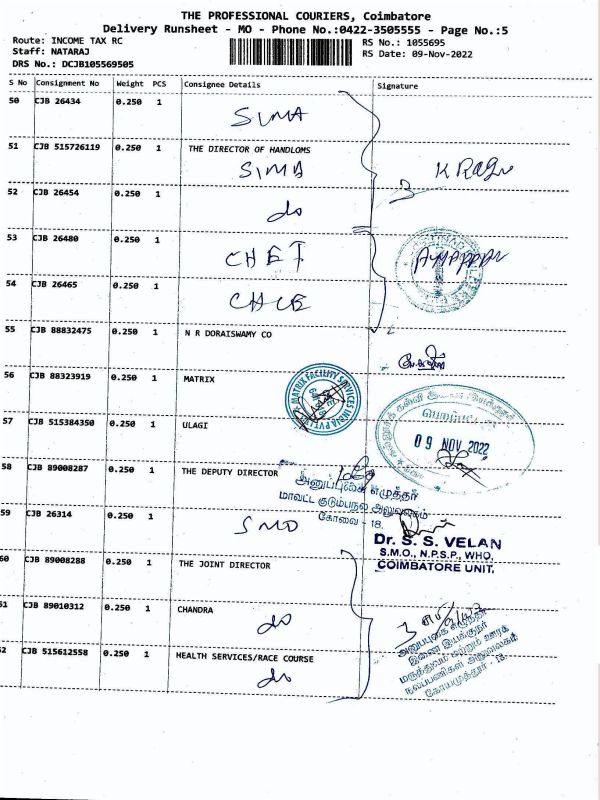 THE PROFESSIONAL COURIERS, Coimbatore
Delivery Runsheet - MO - Phone No.:0422-3505555 - Page No.:5
Route: INCOME TAX RC
RS No.: 1055695
Staff: NATARAJ
RS Date: 09-Nov-2022
DRS No.: DCJB105569505
S No Consignment No Weight PCS Consignee Details Signature
50 CJB 26434 0.250 1 SIMA
51 CJB 515726119 0.250 1 THE DIRECTOR OF HANDLOMS
SIMA
3 K Ragu
52 CJB 26454 0.250 1 do
53 CJB 26480 0.250 1 CHET
54 CJB 26465 0.250 1
55 CJB 88832475 0.250 1 N R DORAISWAMY CO
56 CJB 88323919 0.250 1 MATRIX
MATRIX FACILITY SERVICES INDIA PVT LTD
57 CJB 515384350 0.250 1 ULAGI
09 NOV 2022
58 CJB 89008287 0.250 1 THE DEPUTY DIRECTOR
அனுப்புகை எழுத்தர்
மாவட்ட குடும்பநல அலுவலகம்
கோவை - 18.
59 CJB 26314 0.250 1 SMO
Dr. S. S. VELAN
S.M.O., N.P.S.P., WHO,
COIMBATORE UNIT.
60 CJB 89008288 0.250 1 THE JOINT DIRECTOR
61 CJB 89010312 0.250 1 CHANDRA
do
3
அனுப்புகை எழுத்தர்
இணை இயக்குநர்
மருத்துவம் மற்றும் ஊரக
நலப்பணிகள் அலுவலகம்
கோயமுத்தூர் - 18.
62 CJB 515612558 0.250 1 HEALTH SERVICES/RACE COURSE
do